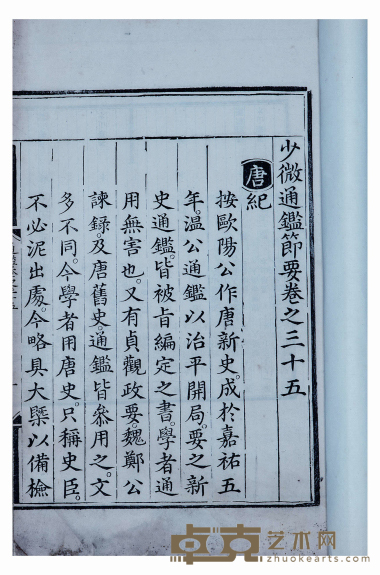 少微通鑑節要卷之三十五
唐紀
按歐陽公作唐新史。成於嘉祐五
年。溫公通鑑以治平開局。要之新
史通鑑。皆被旨編定之書。學者通
用無害也。又有貞觀政要。魏鄭公
諫錄。及唐舊史。通鑑皆叅用之。文
多不同。今學者用唐史。只稱史臣。
不必泥出處。今略具大槩以備檢
卓克艺术网
zhuokearts.com